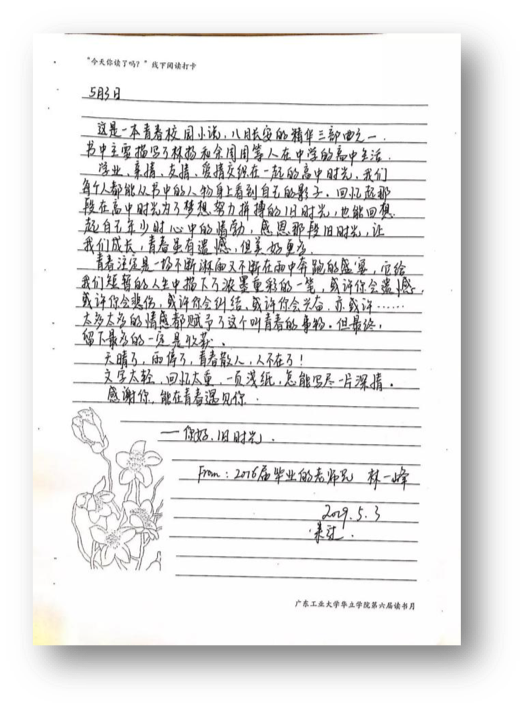 “今天你读了吗？”线下阅读打卡
5月3日
这是一本青春校园小说，八月长安的精华三部曲之一.
书中主要描写了林杨和余周周等人在中学的高中生活.
学业、亲情、友情、爱情交织在一起的高中时光，我们
每个人都能从书中的人物身上看到自己的影子. 回忆起那
段在高中时光为了梦想努力拼搏的旧时光，也能回想
起自己年少时心中的悸动，感恩那段旧时光，让
我们成长，青春虽有遗憾，但美好更多.
青春注定是一场不断淋雨又不断在雨中奔跑的盛宴，它给
我们短暂的人生中描下了浓墨重彩的一笔，或许你会遗憾
或许你会悲伤，或许你会纠结，或许你会兴奋，亦或许……
太多太多的情感都赋予了这个叫青春的事物. 但最终，
留下最多的一定是收获.
天晴了，雨停了，青春散人，人不在了！
文字太轻，回忆太重，一页浅纸，怎能写尽一片深情。
感谢你，能在青春遇见你.
——你好，旧时光.
From：2016届毕业的老师兄 林一峰
2019.5.3
来过.
广东工业大学华立学院第六届读书月